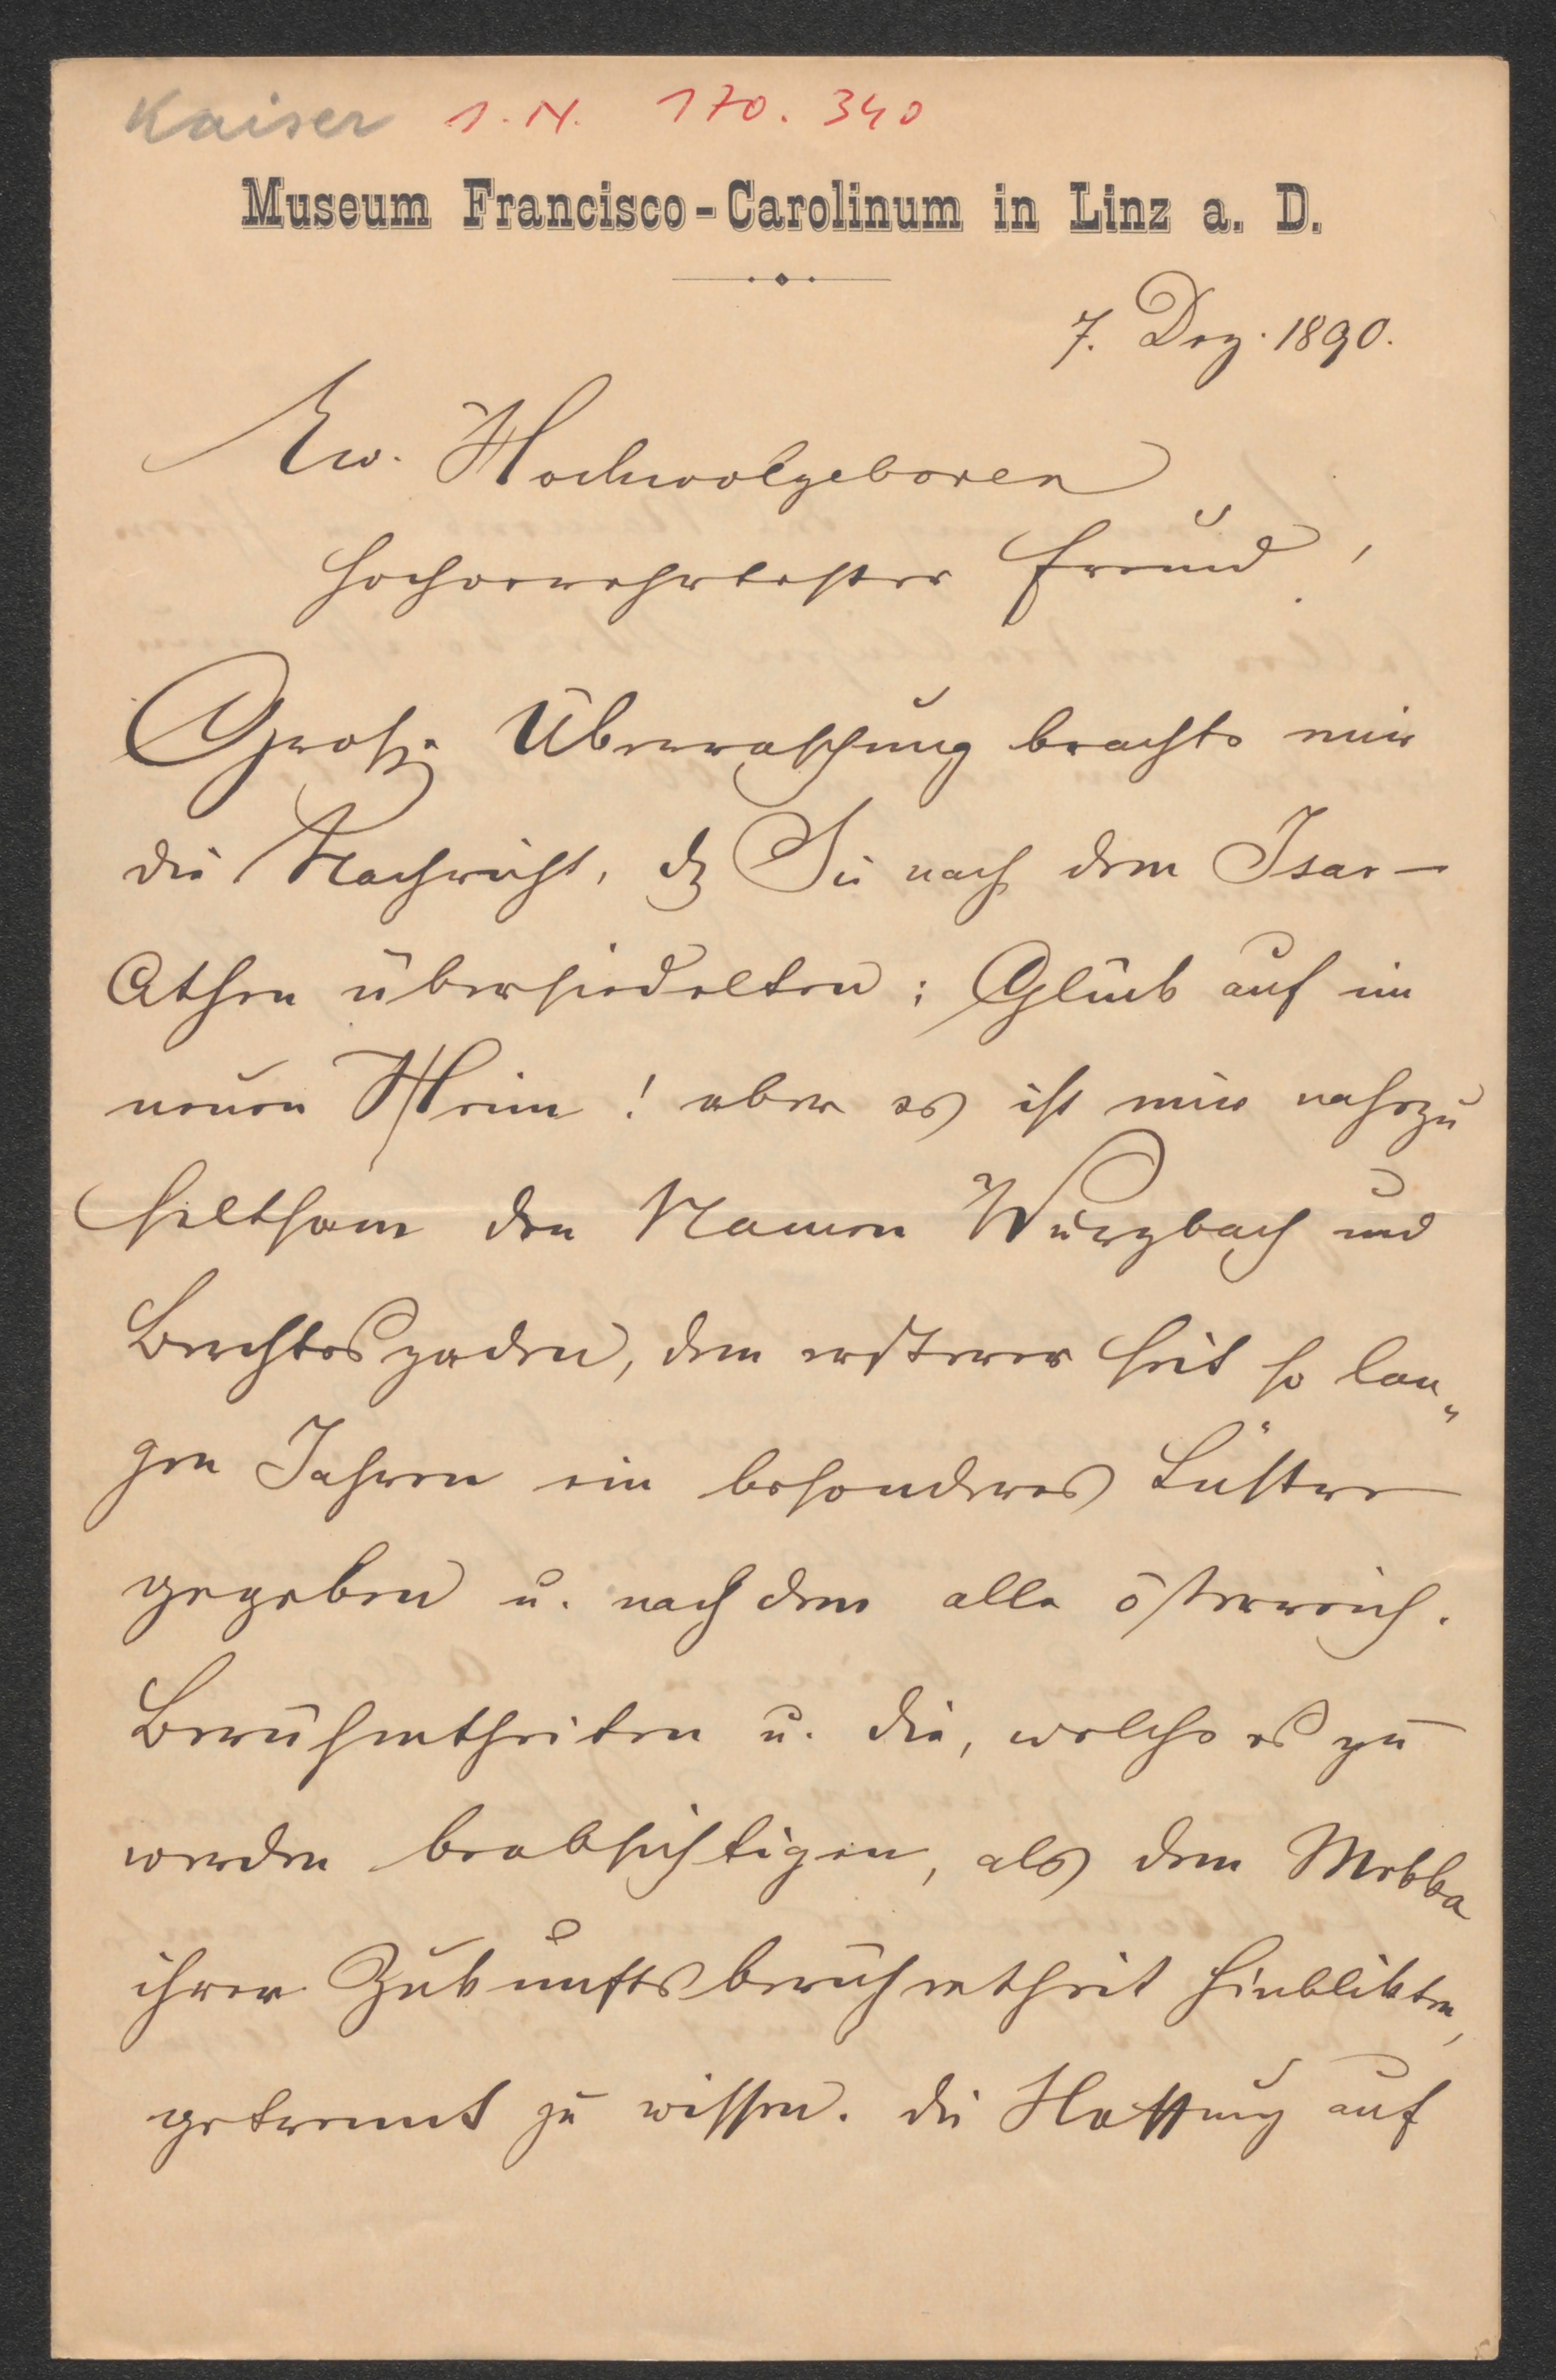 Kaiser I. N. 170.340
Museum Francisco-Carolinum in Linz a. D.
7. Dez. 1890.
Ew. Hochwolgeboren
hochverehrtester Freund!
Große Überraschung brachte mir
die Nachricht, dß Sie nach dem Isar-
Athen übersiedelten; Glück auf im
neuen Heim! aber es ist mir nahezu
seltsam den Namen Wurzbach und
Berchtesgaden, dem ersterer seit so lan„
gen Jahren ein besonderes Lüstre
gegeben u. nach dem alle österreich.
Berühmtheiten u. die, welche es zu
werden beabsichtigen, als dem Mekka
ihrer Zukunftsberühmtheit hinblikten,
getrennt zu wissen. die Hoffnung auf